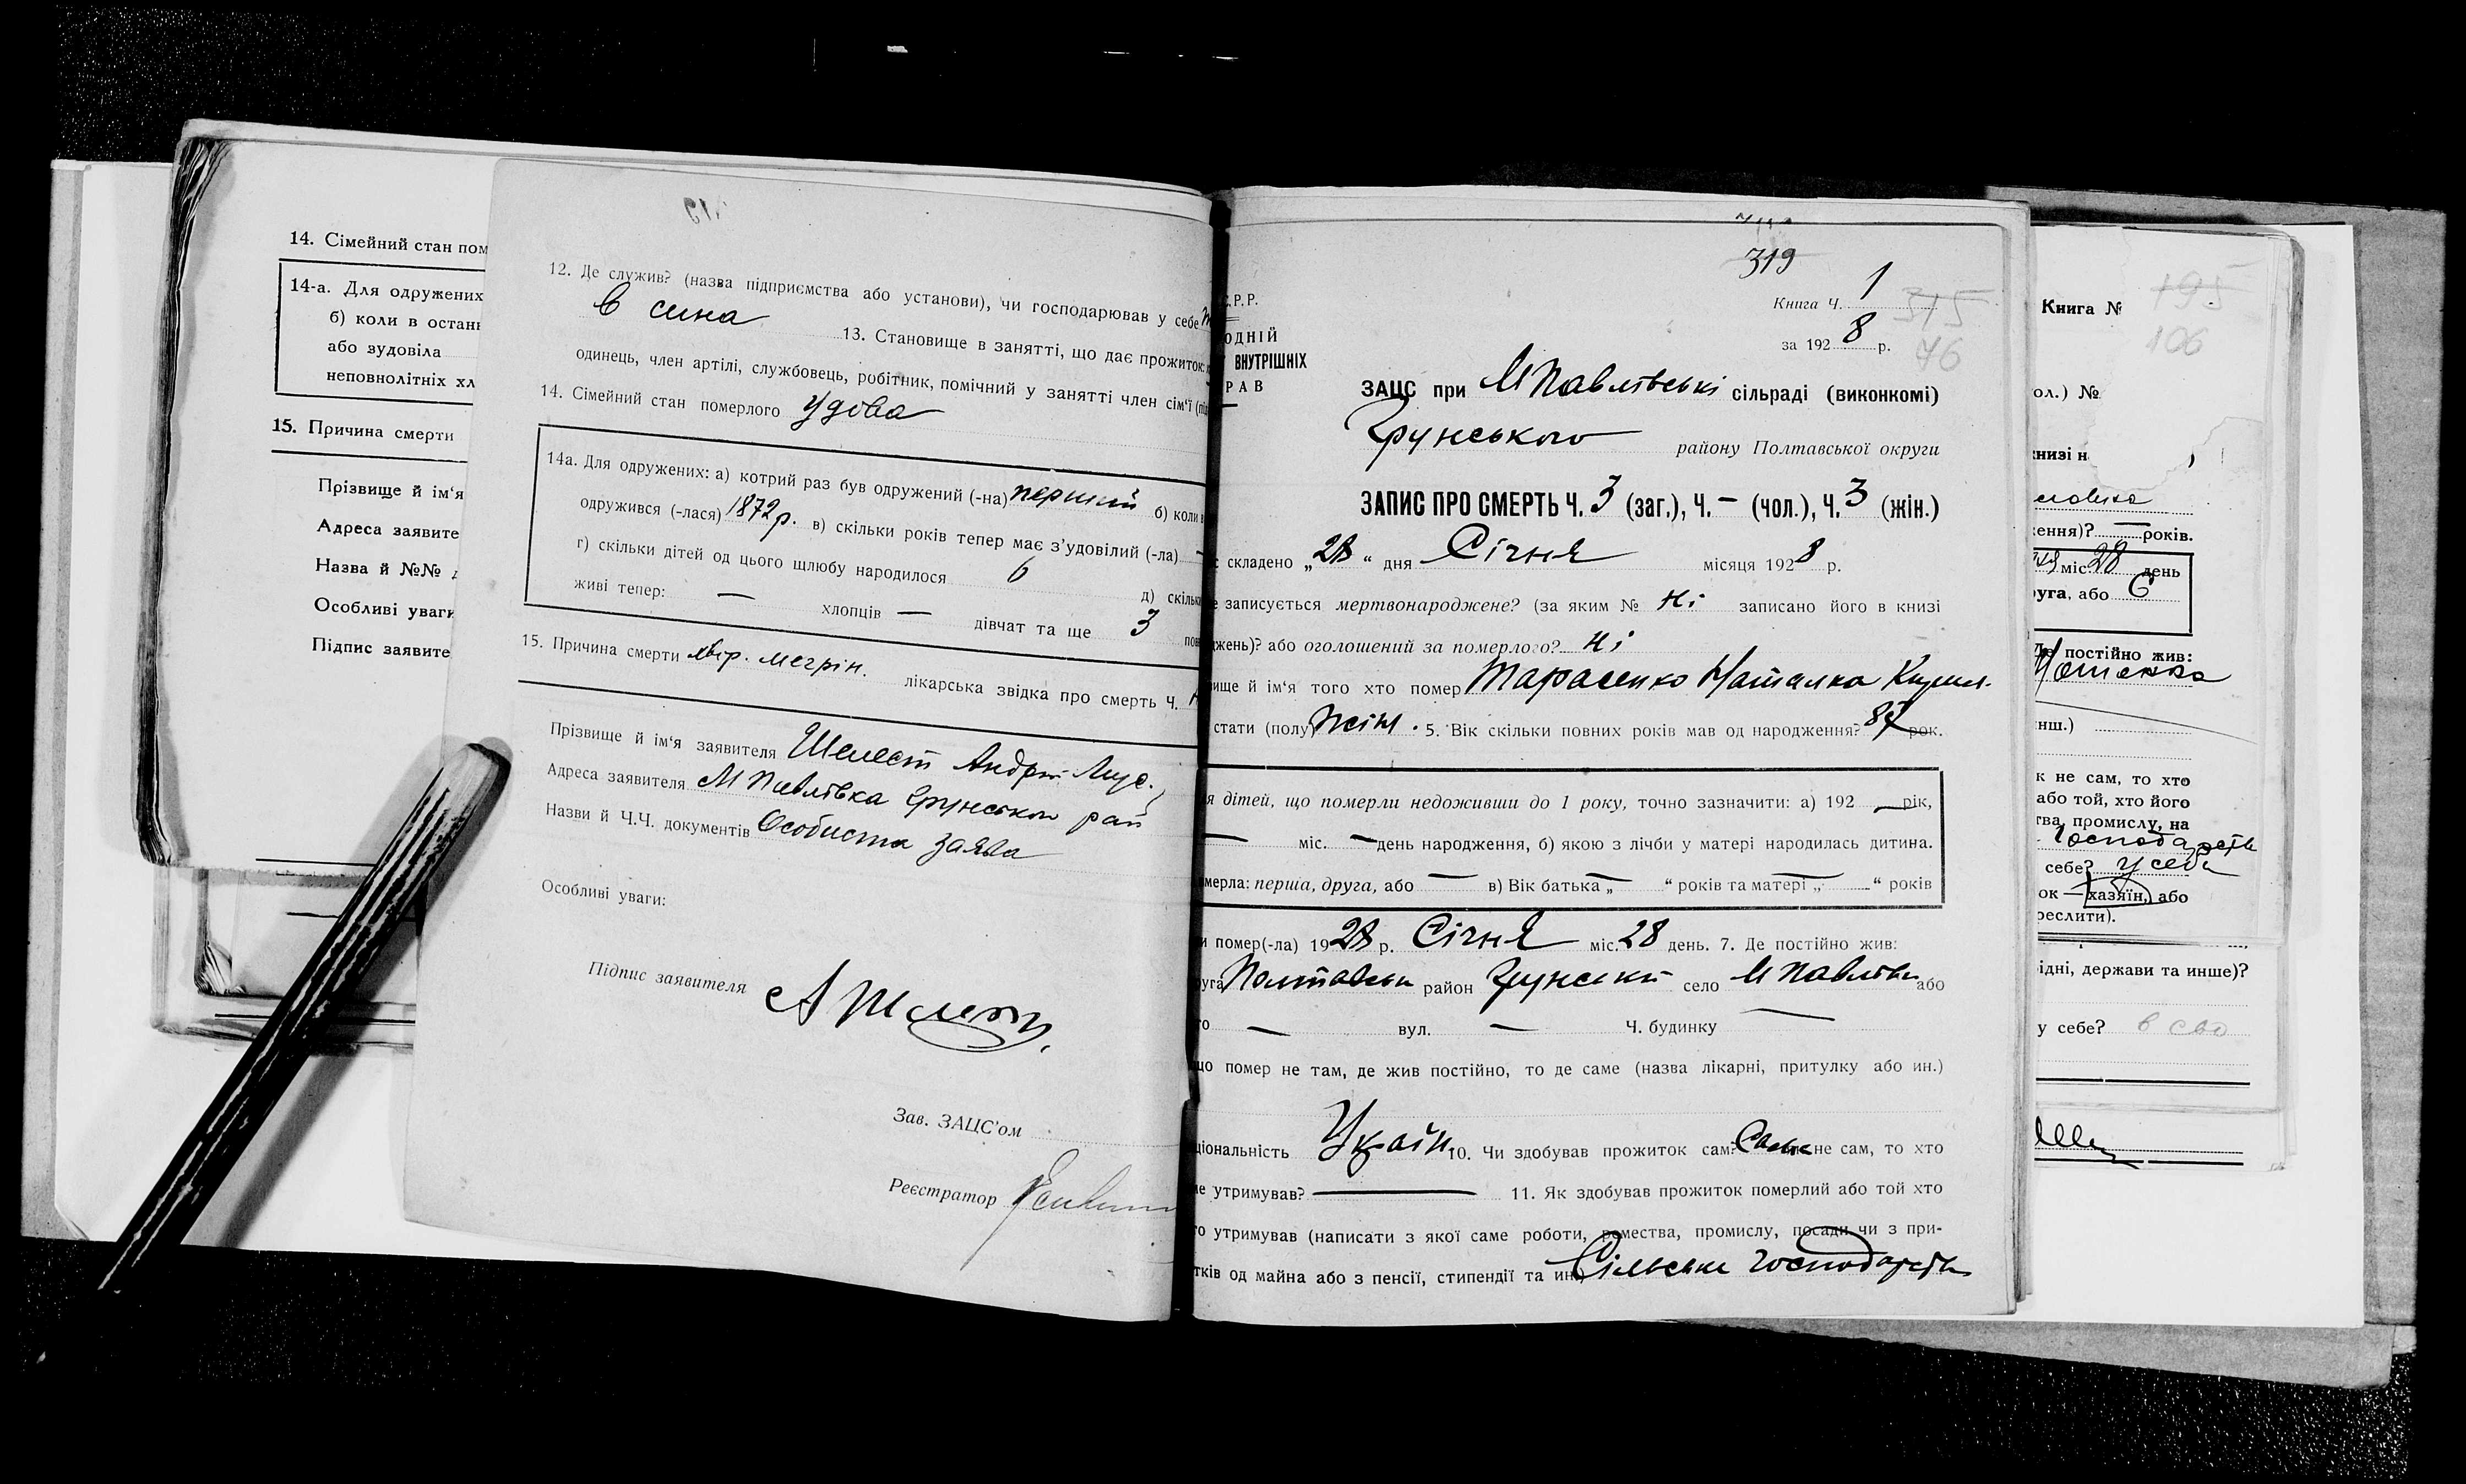 14. Сімейний стан пом
14-а. Для одружених
б) коли в остан
або зудовіла
неповнолітніх хл
15. Причина смерти
Прізвище й ім'я
Адреса заявите
Назва й №№
Особливі уваги
Підпис заявите
12. Де служив? (назва підприємства або установи), чи господарював у себе
в сина 13. Становище в занятті, що дає прожиток:
одинець, член артілі, службовець, робітник, помічний у занятті член сім'ї
14. Сімейний стан померлого удова
14а. Для одружених: а) котрий раз був одружений (-на) перший б) коли
одружився (-лася) 1872 р. в) скільки років тепер має з'удовілий (-ла) —
г) скільки дітей од цього шлюбу народилося 6 д) скільки
живі тепер: — хлопців — дівчат та ще 3
15. Причина смерти лікарська звідка про смерть Ч.
Прізвище й ім'я заявителя Шелест Андрій
Адреса заявителя М Павлівка Грунськой рай
Назви й Ч.Ч. документів Особиста заява
Особливі уваги:
Підпис заявителя
Зав. ЗАЦС'ом
Реєстратор
319
Книга Ч. 1
315
за 192 8 р.
76
С.Р.Р.
ОДНІЙ
ВНУТРІШНІХ
РАВ
ЗАЦС при М Павлівські сільраді (виконкомі)
Грунського району Полтавської округи
ЗАПИС ПРО СМЕРТЬ Ч. 3 (заг.), Ч. — (чол.), Ч. 3 (жін.)
складено „28“ дня Січня місяця 1928 р.
записується мертвонароджене? (за яким № Ні записано його в книзі
джень)? або оголошений за померлого? Ні
вище й ім'я того хто помер Тарасенко Наталка Кирил.
стати (полу) Жін. 5. Вік скільки повних років мав од народження? рок.
я дітей, що померли недоживши до 1 року, точно зазначити: а) 192 — рік,
— міс. — день народження, б) якою з лічби у матері народилась дитина.
мерла: перша, друга, або — в) Вік батька „—“ років та матері „—“ років
и помер(-ла) 1928 р. Січня міс. 28 день. 7. Де постійно жив:
уга Полтавськ район Грунський село М Павлівк або
то — вул. — Ч. будинку —
що помер не там, де жив постійно, то де саме (назва лікарні, притулку або ин.)
ціональність Україн. 10. Чи здобував прожиток сам? Сама не сам, то хто
не утримував? — 11. Як здобував прожиток померлий або той хто
го утримував (написати з якої саме роботи, ремества, промислу, посади чи з при-
тків од майна або з пенсії, стипендії та ин.) Сільське господарств
Книга №
195
106
ол.) №
книзі н
ження)? — років.
міс. 28 день
руга, або 6
Де постійно жив:
нш.)
к не сам, то хто
або той, хто його
тва, промислу, на
господарств
себе? у себе
ок — хазяїн, або
реслити).
ідні, держави та инше)?
у себе? в сво